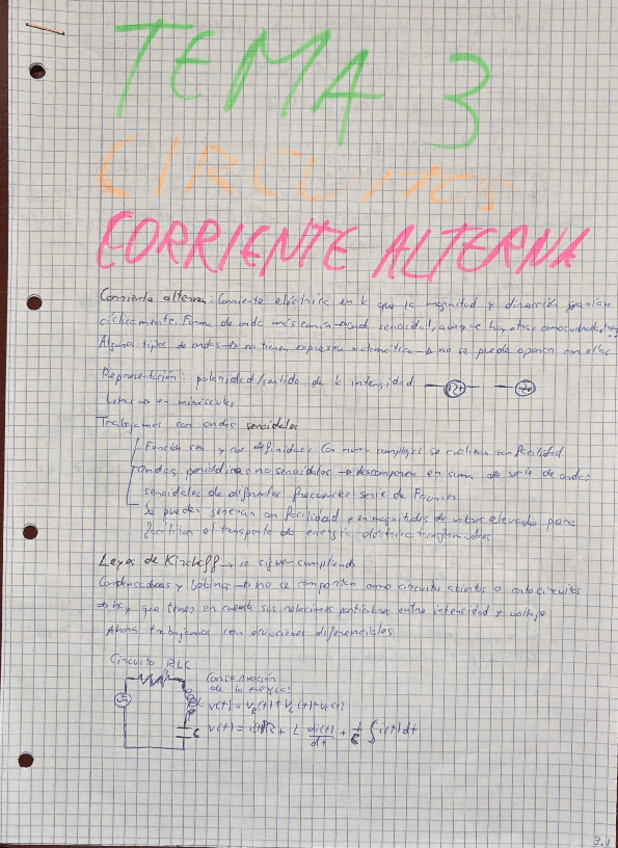 TEMA 3
CIRCUITOS
CORRIENTE ALTERNA
Corriente alterna: Corriente eléctrica en la que la magnitud y dirección varían
cíclicamente. Forma de onda más común → senoidal, aunque hay otras como cuadrada
Algunos tipos de ondas → no tienen expresión matemática → no se puede operar con ellas
Representación: polaridad/sentido de la intensidad
Letras → en minúsculas
Trabajamos con ondas senoidales
Función sen y cos definidas. Con números complejos se analizan con facilidad
Ondas periódicas no senoidales → descomponer en suma de serie de ondas
senoidales de diferentes frecuencias: serie de Fourier
Se pueden generar con facilidad y en magnitudes de valores elevados para
facilitar el transporte de energía eléctrica: transformadores
Leyes de Kirchoff → se siguen cumpliendo
Condensadores y bobinas → no se comportan como circuitos abiertos o cortocircuitos
→ hay que tener en cuenta sus relaciones particulares entre intensidad y voltaje
Ahora trabajamos con ecuaciones diferenciales
Circuito RLC
R
Conservación
de la energía:
L
v(t) = v_R(t) + v_L(t) + v_c(t)
C
v(t) = i(t)R + L di(t)/dt + 1/C ∫i(t)dt
3.1